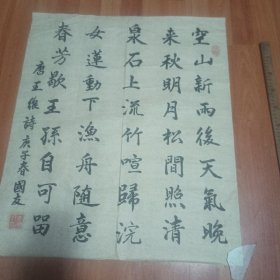 空山新雨後天氣晚
来秋明月松間照清
泉石上流竹喧歸浣
女蓮動下漁舟随意
春芳歇王孫自可留
唐王維詩庚子春國友